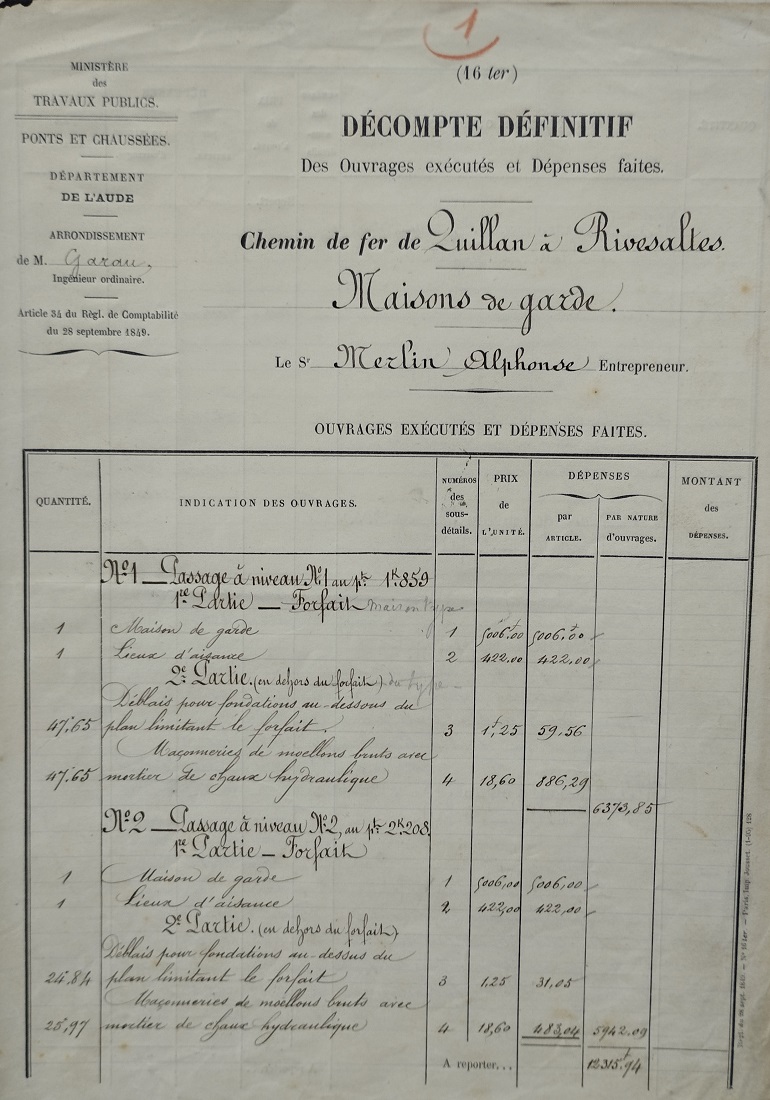 1
(16 ter)
MINISTÈRE
des
TRAVAUX PUBLICS.
PONTS ET CHAUSSÉES.
DÉPARTEMENT
DE L'AUDE
ARRONDISSEMENT
de M. Garau,
Ingénieur ordinaire.
Article 34 du Règl. de Comptabilité
du 28 septembre 1849.
DÉCOMPTE DÉFINITIF
Des Ouvrages exécutés et Dépenses faites.
Chemin de fer de Quillan à Rivesaltes.
Maisons de garde.
Le Sr Merlin Alphonse Entrepreneur.
OUVRAGES EXÉCUTÉS ET DÉPENSES FAITES.
QUANTITÉ. INDICATION DES OUVRAGES. NUMÉROS des sous-détails. PRIX de L'UNITÉ. DÉPENSES par ARTICLE. PAR NATURE d'ouvrages. MONTANT des DÉPENSES.
No 1 — Passage à niveau No 1 au pt 1k.859
1re Partie — Forfait maison type
1 Maison de garde 1 5006f.00 5006f.00
1 Lieux d'aisance 2 422.00 422.00
2e Partie. (en dehors du forfait) du type
Déblais pour fondations au-dessous du
47,65 plan limitant le forfait. 3 1f,25 59,56
Maçonneries de moellons bruts avec
47,65 mortier de chaux hydraulique 4 18,60 886,29
6373,85
No 2 — Passage à niveau No 2, au pt 2K.208.
1re Partie — Forfait
1 Maison de garde 1 5006,00 5006,00
1 Lieux d'aisance 2 422,00 422,00
2e Partie. (en dehors du forfait)
Déblais pour fondations au-dessus du
24,84 plan limitant le forfait 3 1,25 31,05
Maçonneries de moellons bruts avec
25,97 mortier de chaux hydraulique 4 18,60 483,04 5942,09
A reporter... 12315f.94